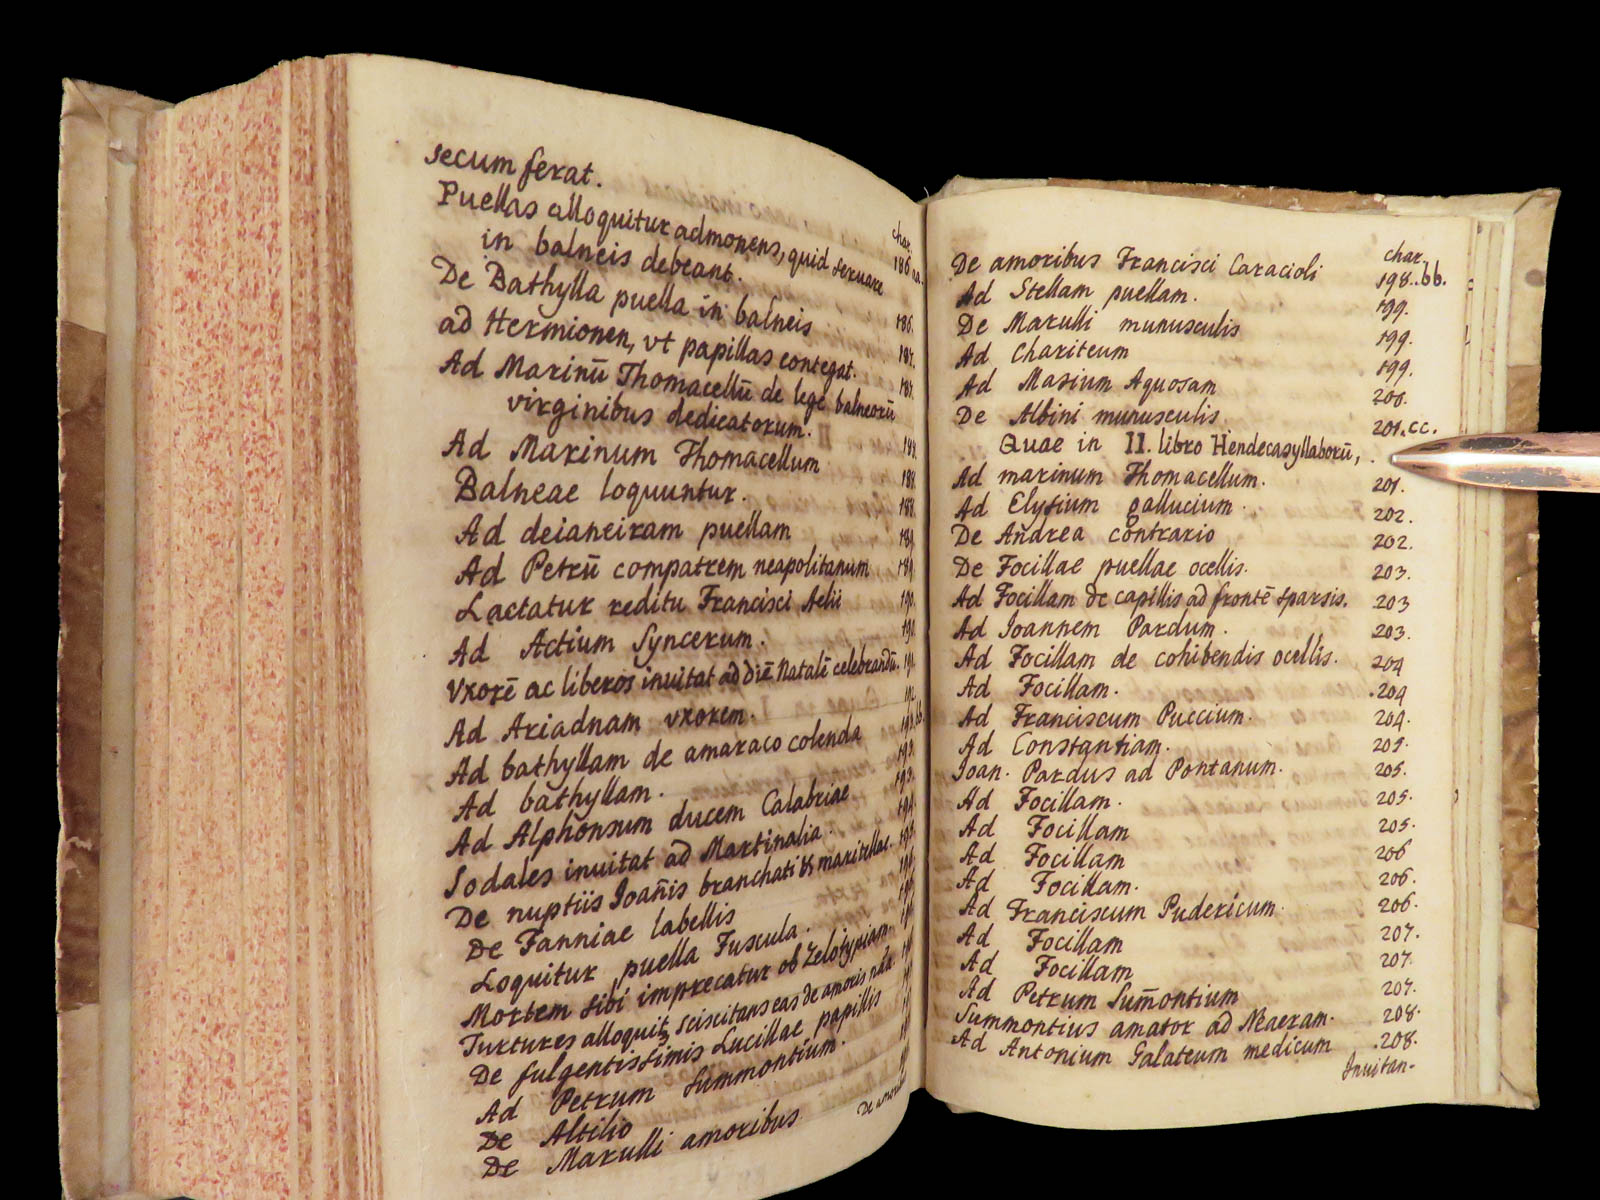 secum ferat.
char.
Puellas alloquitur admonens, quid seruare 186 aa.
in balneis debeant.
De Bathylla puella in balneis 186.
ad Hermionen, vt papillas contegat. 187.
Ad Marinū Thomacellū de lege balneorū 187.
virginibus dedicatorum.
Ad Marinum Thomacellum 188.
Balneae loquuntur. 188.
Ad deianeiram puellam 188.
Ad Petrū compatrem neapolitanum 189.
Laetatur reditu Francisci Aelii 189.
Ad Actium Syncerum. 190.
Vxorē ac liberos inuitat ad diē Natalē celebrandū. 191.
Ad Ariadnam vxorem.
Ad bathyllam de amaraco colenda 193.
Ad bathyllam. 193.
Ad Alphonsum ducem Calabriae
Sodales inuitat ad Martinalia.
De nuptiis Joañis branchati & maritellae.
De Fanniae labellis
Loquitur puella Fuscula.
Mortem sibi imprecatur ob Zelotypiam.
Turtures alloquit, sciscitans eas de amoris nāa
De fulgentissimis Lucillae papillis
Ad Petrum Summontium.
De Altilio
De Marulli amoribus
De amori
char.
De amoribus Francisci Caracioli 198. bb.
Ad Stellam puellam. 199.
De Marulli munusculis 199.
Ad Chariteum 199.
Ad Masium Aquosam 200.
De Albini munusculis 201. cc.
Quae in II. libro Hendecasyllaborū,
Ad marinum Thomacellum. 201.
Ad Elysium gallucium. 202.
De Andrea contrario 202.
De Focillae puellae ocellis. 203.
Ad Focillam de capillis ad frontē sparsis. 203
Ad Joannem Pardum. 203.
Ad Focillam de cohibendis ocellis. 204
Ad Focillam. 204
Ad Franciscum Puccium. 204.
Ad Constantiam. 205.
Joan. Pardus ad Pontanum. 205.
Ad Focillam. 205.
Ad Focillam 205.
Ad Focillam 206
Ad Focillam. 206.
Ad Franciscum Pudericum 206.
Ad Focillam 207.
Ad Focillam 207.
Ad Petrum Sum̄ontium 207.
Summontius amator ad Neaeram. 208.
Ad Antonium Galateum medicum 208.
Inuitan-